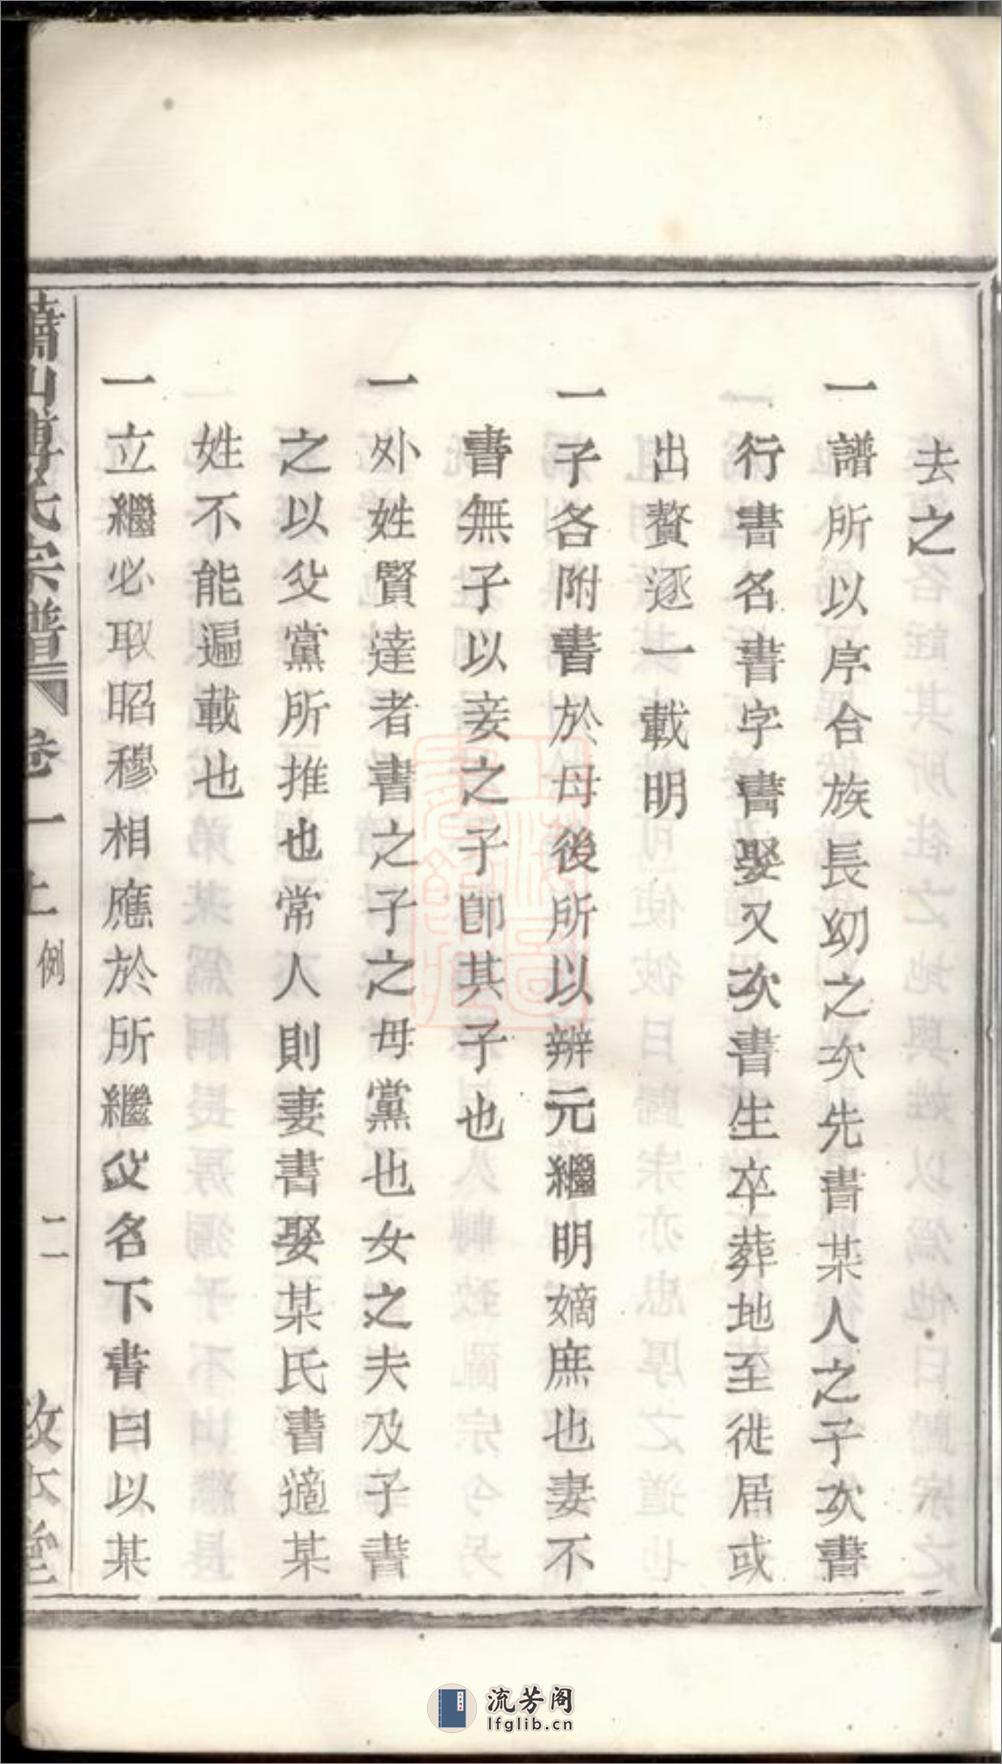 去之
一譜所以序合族長幼之次先書某人之子次書
行書名書字書娶又次書生卒葬地至徙居或
出贅逐一載明
一子各附書於母後所以辯元繼明嫡庶也妻不
書無子以妾之子卽其子也
一外姓賢達者書之子之母黨也女之夫及子書
之以父黨所推也常人則妻書娶某氏書適某
姓不能遍載也
一立繼必取昭穆相應於所繼父名下書曰以某
蕭山 氏宗譜 卷一上 例 二
流芳阁
lfglib.cn